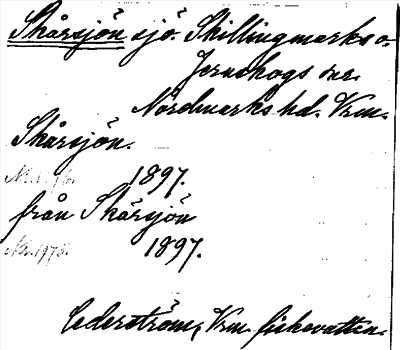 Skårsjön sjö. Skillingmarks o.
Järnskogs snr.
Nordmarks hd. Vrm.
Skårsjön.
1897.
från Skårsjön
1897.
Cederström, Vrm. fiskevatten.